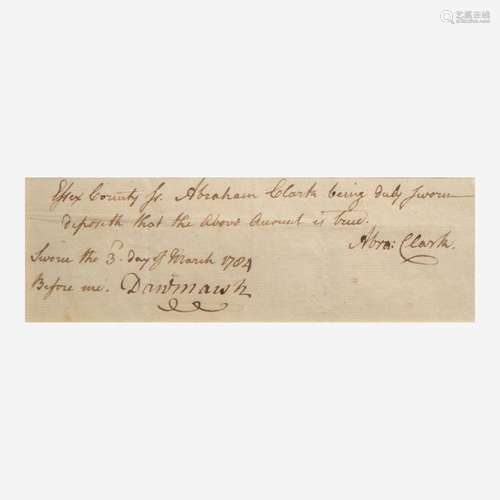 艺狐在线
Essex County Ss. Abraham Clark being duly Sworn
deposeth that the Above Account is true.
Abra: Clark.
Sworn the 3d. day of March 1784
Before me. Danl marsh